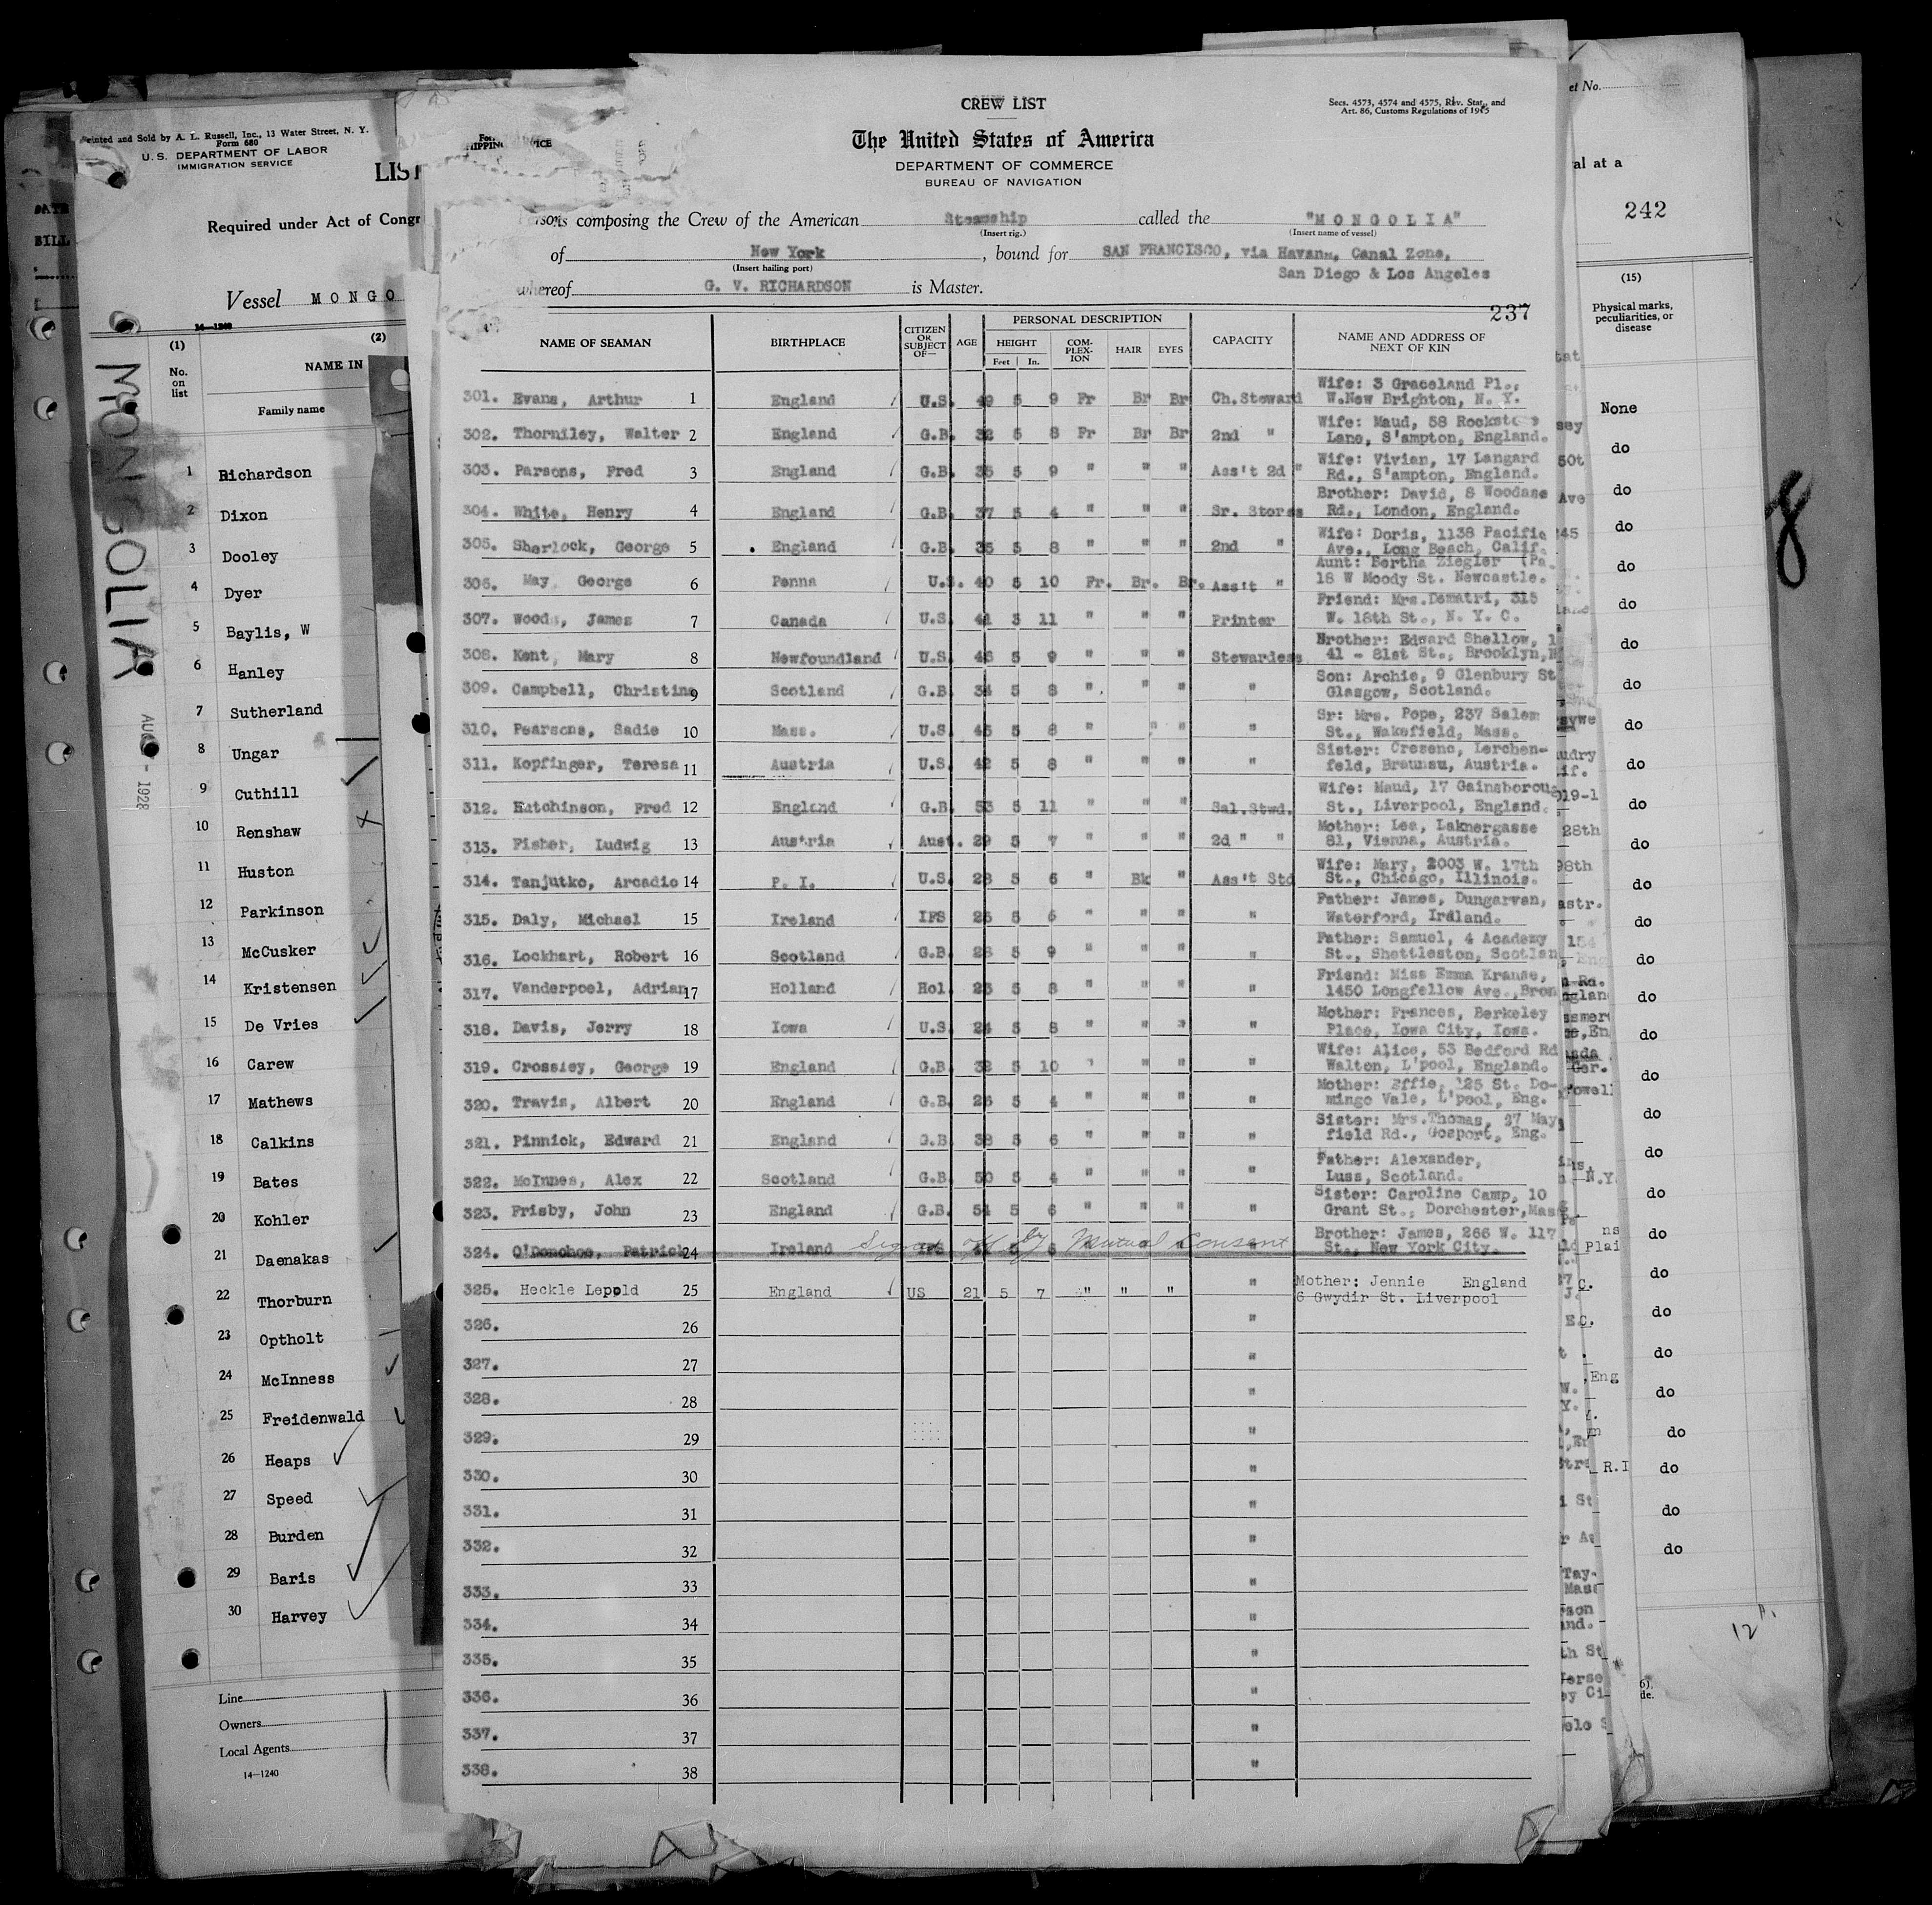 Printed and Sold by A. L. Russell, Inc., 13 Water Street, N. Y.
Form 680
U. S. DEPARTMENT OF LABOR
IMMIGRATION SERVICE
LIST
Required under Act of Congr
Vessel MONGO
14—1240
(1) (2)
No. on list
NAME IN
Family name
MONGOLIA
AUG - 1928
1 Richardson
2 Dixon
3 Dooley
4 Dyer
5 Baylis, W
6 Hanley
7 Sutherland
8 Ungar
9 Cuthill
10 Renshaw
11 Huston
12 Parkinson
13 McCusker
14 Kristensen
15 De Vries
16 Carew
17 Mathews
18 Calkins
19 Bates
20 Kohler
21 Daenakas
22 Thorburn
23 Optholt
24 McInness
25 Freidenwald
26 Heaps
27 Speed
28 Burden
29 Baris
30 Harvey
Line
Owners
Local Agents
14—1240
CREW LIST
Secs. 4573, 4574 and 4575, Rev. Stat., and
Art. 86, Customs Regulations of 1915
The United States of America
DEPARTMENT OF COMMERCE
BUREAU OF NAVIGATION
composing the Crew of the American Steamship called the "MONGOLIA"
(Insert rig.) (Insert name of vessel)
of New York, bound for SAN FRANCISCO, via Havana, Canal Zone,
(Insert hailing port) San Diego & Los Angeles
whereof G. V. RICHARDSON is Master.
237
NAME OF SEAMAN BIRTHPLACE CITIZEN OR SUBJECT OF— AGE PERSONAL DESCRIPTION CAPACITY NAME AND ADDRESS OF NEXT OF KIN
HEIGHT COM-PLEX-ION HAIR EYES
Feet In.
301. Evans, Arthur 1 England U.S. 49 5 9 Fr Br Br Ch.Steward Wife: 3 Graceland Pl.,
W.New Brighton, N. Y.
302. Thorniley, Walter 2 England G.B. 32 5 8 Fr Br Br 2nd " Wife: Maud, 58
Lane, S'ampton, England.
303. Parsons, Fred 3 England G.B. 35 5 9 " " " Ass't 2d " Wife: Vivian, 17 Langard
Rd., S'ampton, England.
304. White, Henry 4 England G.B. 37 5 4 " " " Sr. Stores Brother: David, 8 Woodane
Rd., London, England.
305. Sherlock, George 5 England G.B. 35 5 8 " " " 2nd " Wife: Doris, 1138 Pacific
Ave., Long Beach, Calif.
306. May, George 6 Penna U.S. 40 5 10 Fr. Br. Br. Ass't " Aunt: Bertha Ziegler (Pa.
18 W Moody St. Newcastle.
307. Woods, James 7 Canada U.S. 41 5 11 " " " Printer Friend: Mrs.Dematri, 315
W. 18th St., N. Y. C.
308. Kent, Mary 8 Newfoundland U.S. 46 5 9 " " " Stewardess Brother: Edward Shellow, 1
41 - 81st St., Brooklyn,N
309. Campbell, Christina 9 Scotland G.B. 34 5 8 " " " " Son: Archie, 9 Glenbury St
Glasgow, Scotland.
310. Pearsons, Sadie 10 Mass. U.S. 45 5 8 " " " " Sr: Mrs. Pope, 237 Salem
St., Wakefield, Mass.
311. Kopfinger, Teresa 11 Austria U.S. 42 5 8 " " " " Sister: Cresenc, Lerchen-
feld, Braunau, Austria.
312. Hutchinson, Fred 12 England G.B. 53 5 11 " " " Sal.Stwd. Wife: Maud, 17 Gainsborous
St., Liverpool, England.
313. Fisher, Ludwig 13 Austria Aust. 29 5 7 " " " 2d " " Mother: Lea, Laknergasse
81, Vienna, Austria.
314. Tanjutko, Arcadio 14 P. I. U.S. 28 5 6 " Bk " Ass't Std Wife: Mary, 2003 W. 17th
St., Chicago, Illinois.
315. Daly, Michael 15 Ireland IFS 25 5 6 " " " " Father: James, Dungarvan,
Waterford, Ireland.
316. Lockhart, Robert 16 Scotland G.B. 28 5 9 " " " " Father: Samuel, 4 Academy
St., Shettleston, Scotlan
317. Vanderpoel, Adrian 17 Holland Hol. 23 5 8 " " " " Friend: Miss Emma Krause,
1450 Longfellow Ave.,Bron
318. Davis, Jerry 18 Iowa U.S. 24 5 8 " " " " Mother: Frances, Berkeley
Place, Iowa City, Iowa.
319. Crossley, George 19 England G.B. 32 5 10 " " " " Wife: Alice, 53 Bedford Rd
Walton, L'pool, England.
320. Travis, Albert 20 England G.B. 26 5 4 " " " " Mother: Effie, 125 St. Do-
mingo Vale, L'pool, Eng.
321. Pinnick, Edward 21 England G.B. 38 5 6 " " " " Sister: Mrs.Thomas, 27 May
field Rd., Gosport, Eng.
322. McInnes, Alex 22 Scotland G.B. 50 5 4 " " " " Father: Alexander,
Luss, Scotland.
323. Frisby, John 23 England G.B. 54 5 6 " " " " Sister: Caroline Camp, 10
Grant St., Dorchester,Mass
324. O'Donohoe, Patrick 24 Ireland IFS 5 6 " Brother: James, 266 W. 117
St., New York City.
Signed off by Mutual Consent
325. Heckle Leppld 25 England US 21 5 7 " " " " Mother: Jennie England
6 Gwydir St. Liverpool
326. 26 "
327. 27 "
328. 28 "
329. 29 "
330. 30 "
331. 31 "
332. 32 "
333. 33 "
334. 34 "
335. 35 "
336. 36 "
337. 37 "
338. 38 "
et No.
al at a
242
(15)
Physical marks, peculiarities, or disease
None
do
do
do
do
do
do
do
do
do
do
do
do
do
do
do
do
do
do
do
do
do
do
do
do
do
do
do
do
do
8
12